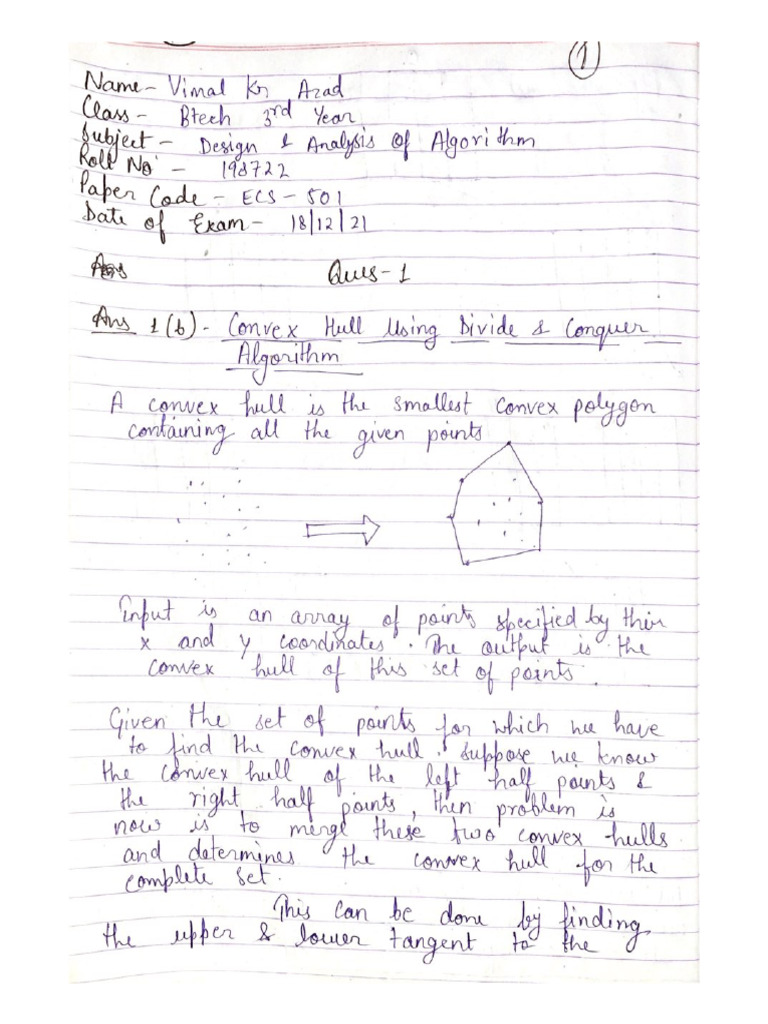 1
Name - Vimal Kr Azad
Class - Btech 3rd Year
Subject - Design & Analysis of Algorithm
Roll No - 198722
Paper Code - ECS - 501
Date of Exam - 18/12/21
Ques-1
Ans 1(b) - Convex Hull Using Divide & Conquer
Algorithm
A convex hull is the smallest convex polygon
containing all the given points
Input is an array of points specified by their
x and y coordinates. The output is the
convex hull of this set of points.
Given the set of points for which we have
to find the convex hull. suppose we know
the convex hull of the left half points &
the right half points, then problem is
now is to merge these two convex hulls
and determines the convex hull for the
complete set.
This can be done by finding
the upper & lower tangent to the